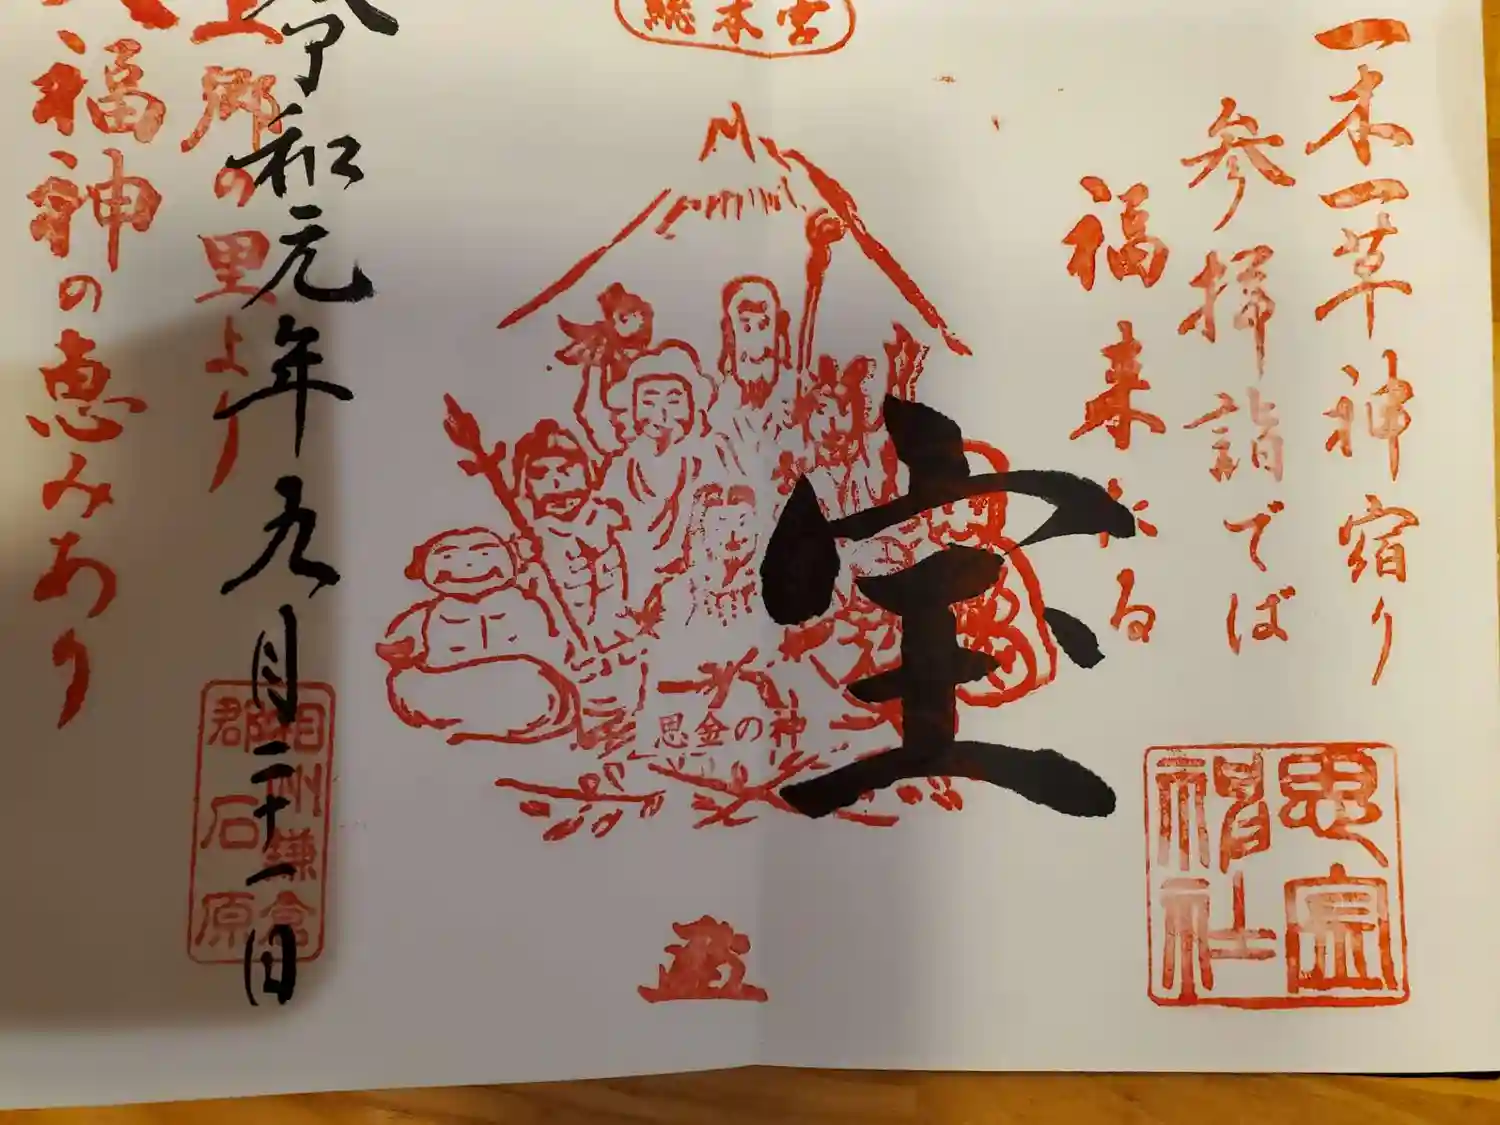 総本宮
一木一草神宿り
参拝詣でば
福来たる
宝
思金の神
思金
神社
郷の里より
福神の恵みあり
令和元年九月二十一日
相州鎌倉
郡石原